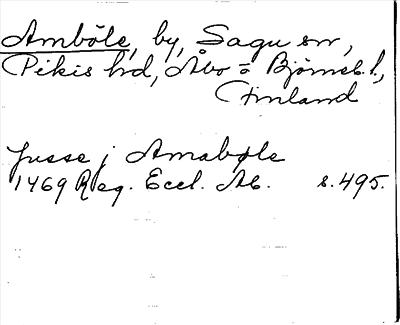 Amböle, by, Sagu sn,
Pikis hd, Åbo o Björneb. l.,
Finland
Jusse j Amabøle
1469 Reg. Eccl. Ab. s. 495.